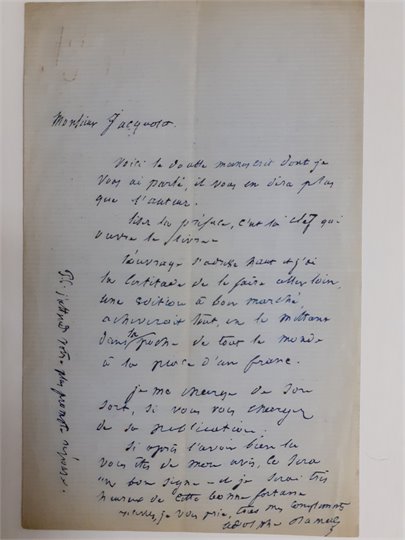 Monsieur Jacquot.
Voici le docte manuscrit dont je
vous ai parlé, il vous en dira plus
que l'auteur.
la préface, c'est la clef qui
ouvre le livre
L'ouvrage s'adresse haut et j'ai
la certitude de le faire aller loin,
une édition à bon marché,
achèverait tout, en le mettant
dans la poche de tout le monde
à la place d'un franc.
je me charge de son
sort, si vous vous charger
de sa publication.
si après l'avoir bien lu
vous êtes de mon avis, ce sera
un bon signe et je serai très
heureux de cette bonne fortune
je vous prie, tous mes compliments
Adolphe
j'attends votre plus prompte réponse.